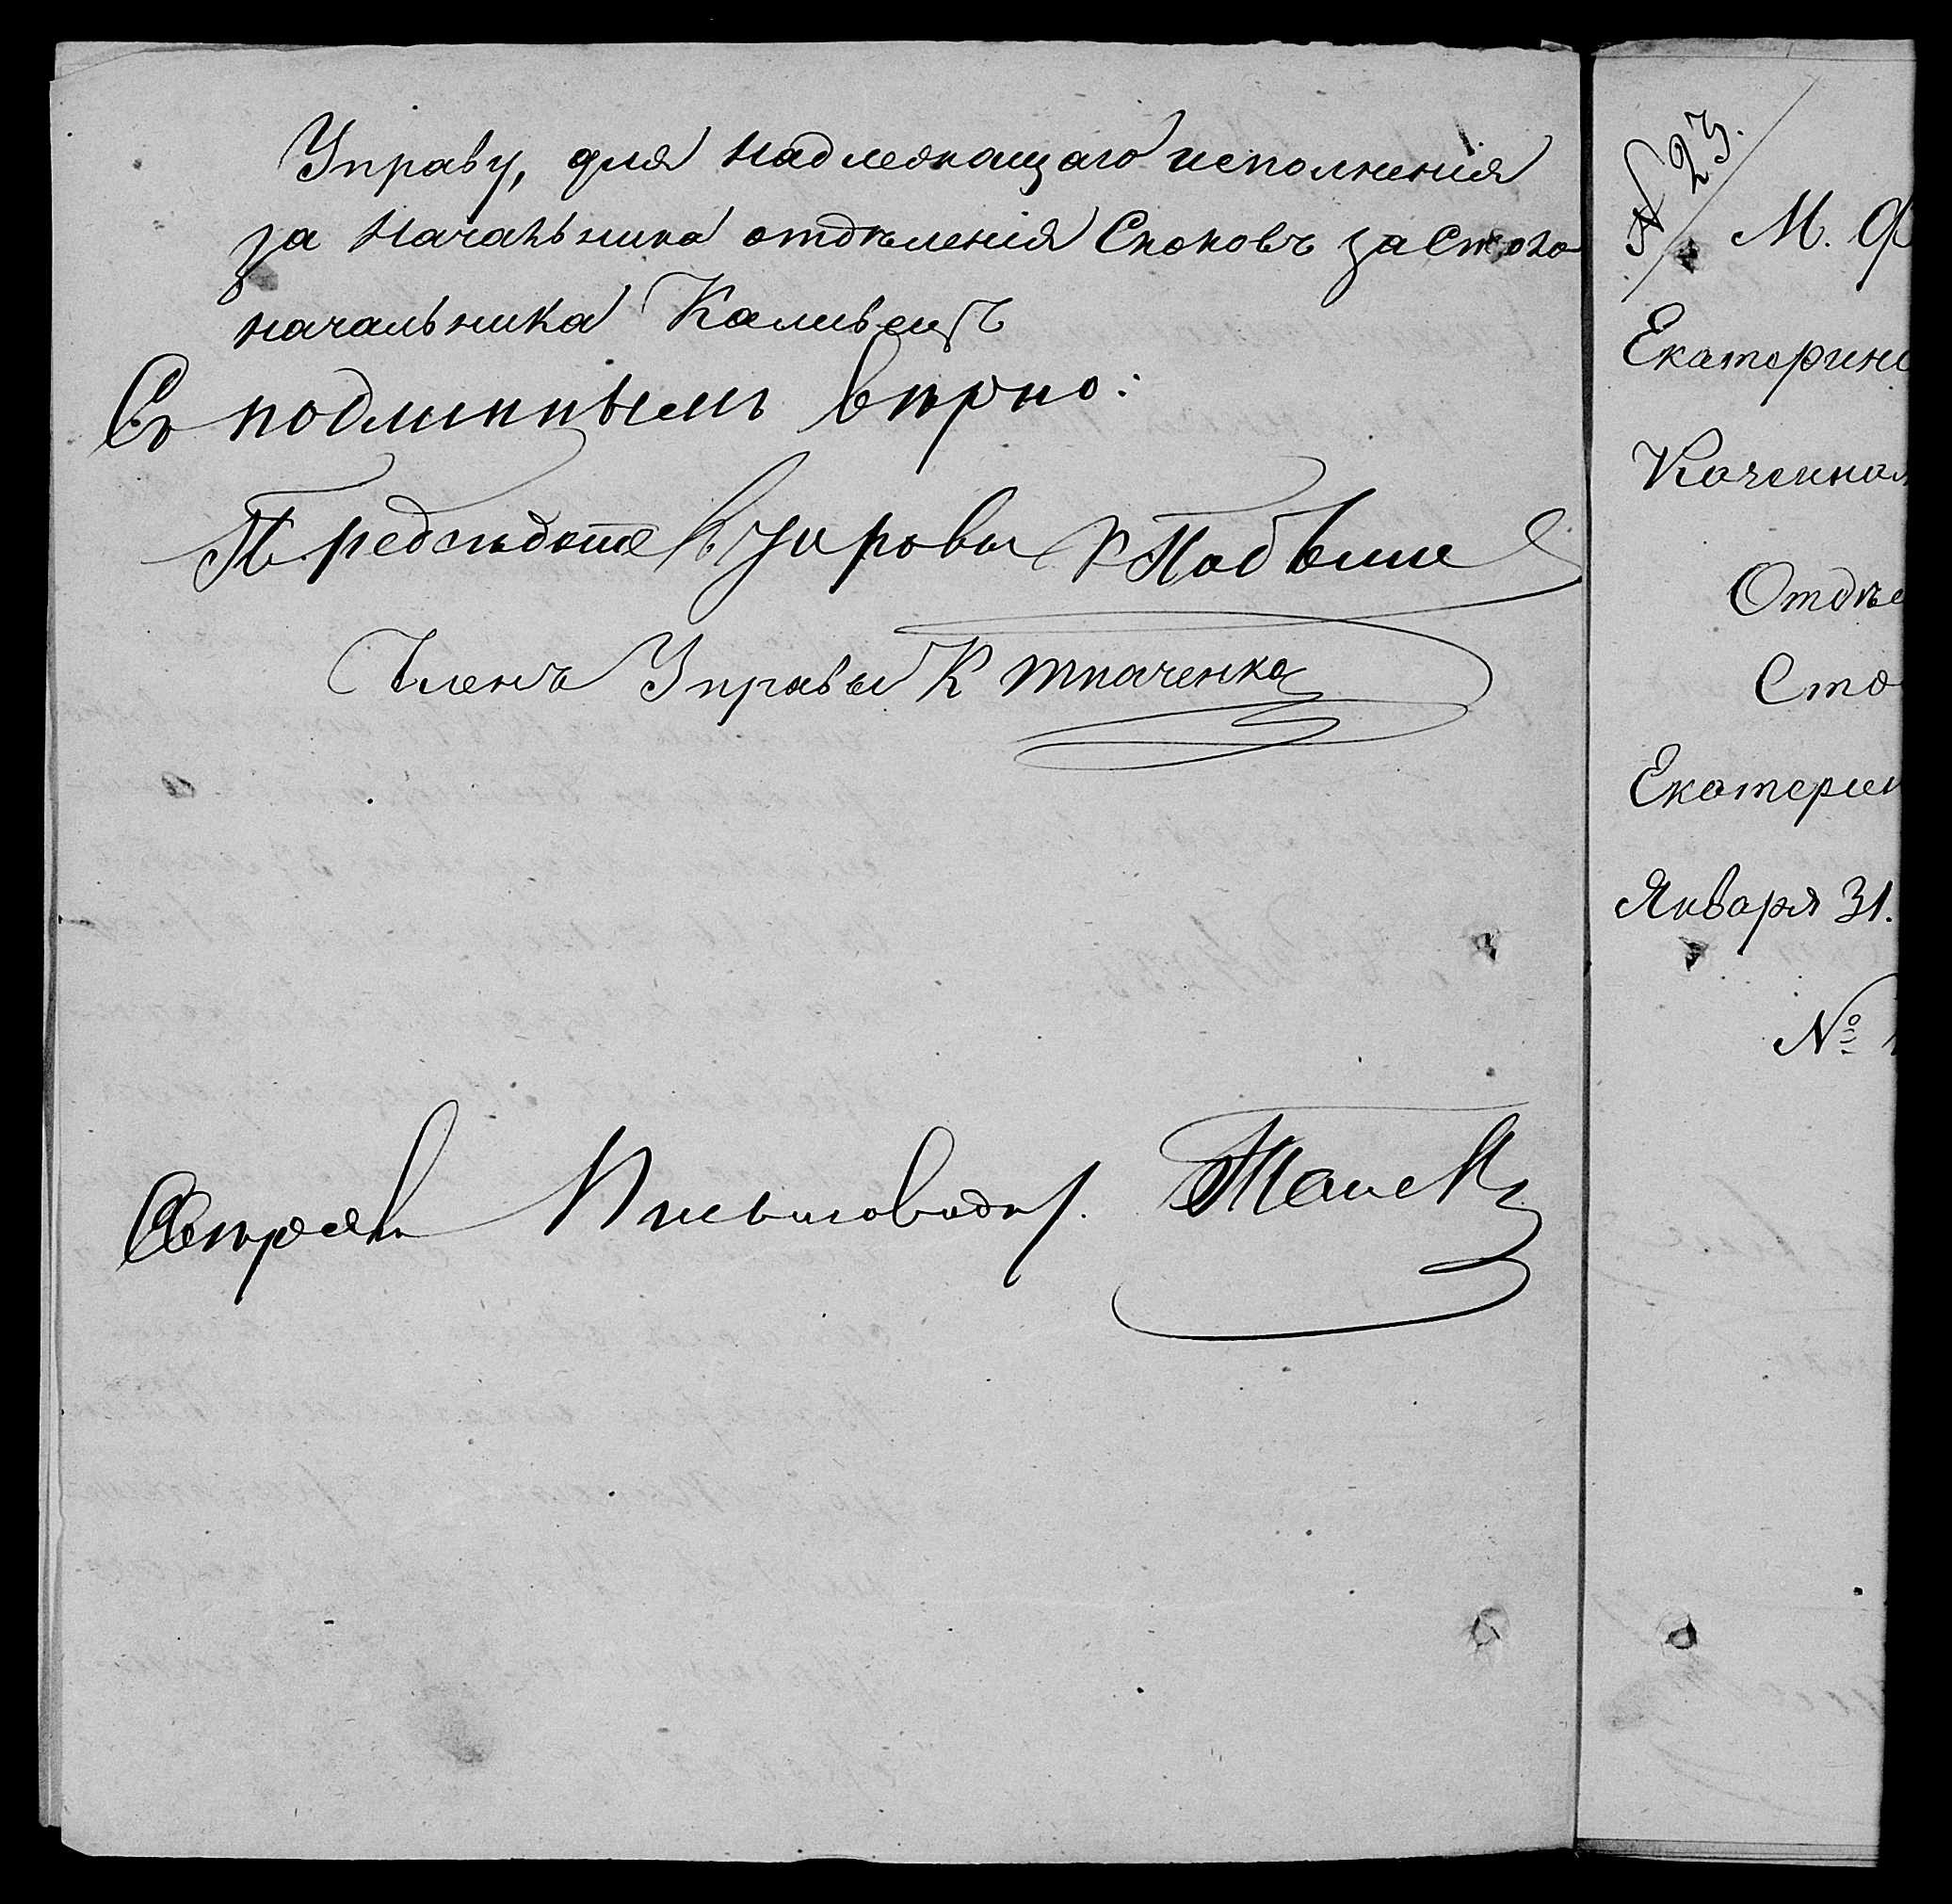 Управу, для надлежащаго исполненія
за Начальника отдѣленія Сноковъ за Столо
начальника
Съ подлиннымъ вѣрно:
Предсѣдатель Управы
Членъ Управы К Ткаченко
Свѣрялъ Письмоводит.
№ 23.
М. Ф
Екатерино
Казенная
Отдѣ
Сто
Екатерин
Января 31.
№